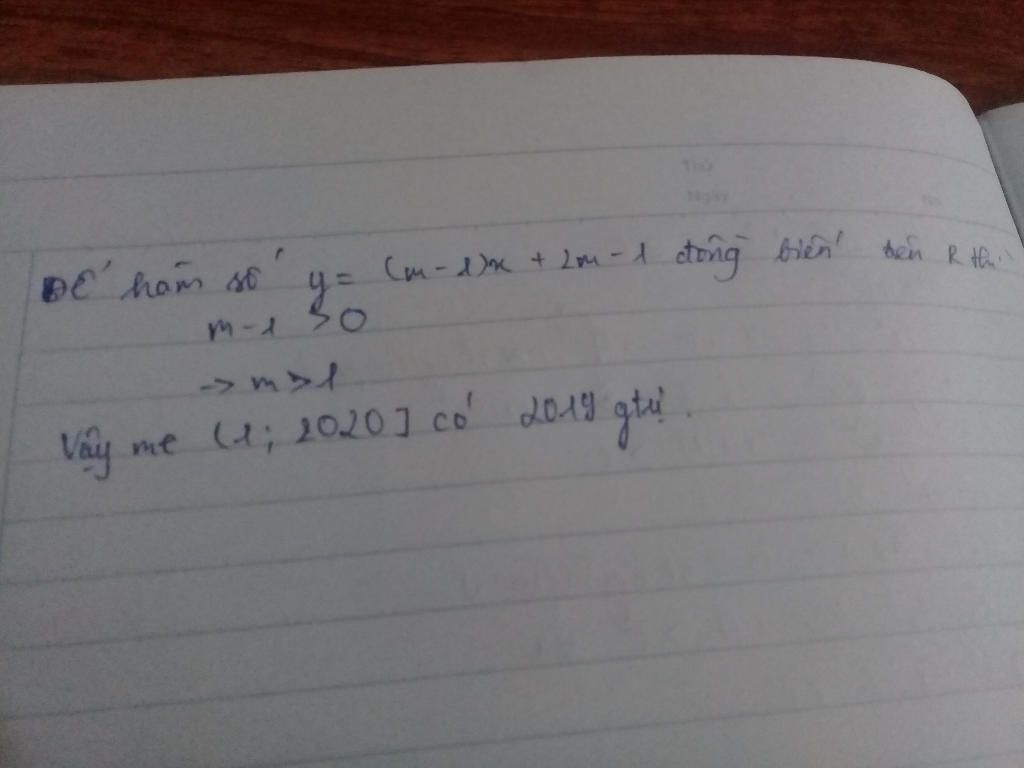 Thứ
Ngày
No
Để hàm số y = (m-1)x + 2m - 1 đồng biến trên R thì
m-1 > 0
-> m > 1
Vậy m ∈ (1; 2020] có 2019 gtrị.